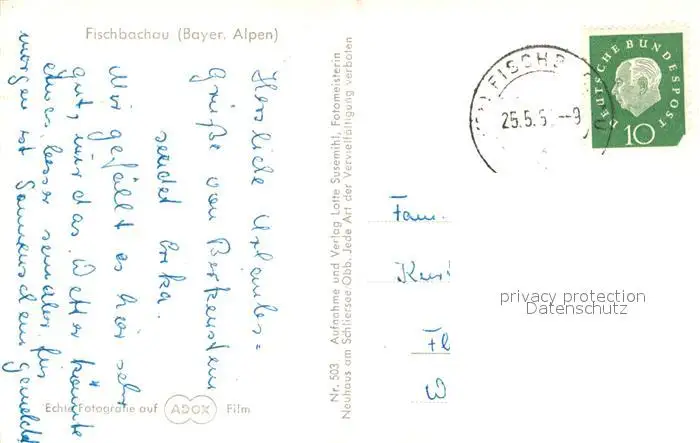 Fischbachau (Bayer. Alpen)
Herzliche Urlaubs=
grüße von Birkenstein
sendet Erika.
Mir gefällt es hier sehr
gut, nur das Wetter könnte
etwas besser sein, aber für
morgen ist Sonnenschein gemeldet
Echte Fotografie auf ADOX Film
Nr. 503 Aufnahme und Verlag Lotte Susemihl, Fotomeisterin
Neuhaus am Schliersee/Obb. Jede Art der Vervielfältigung verboten
FISCHB
25.5.6 --9
DEUTSCHE BUNDESPOST
10
Fam.
Kur
Fl
W
privacy protection
Datenschutz